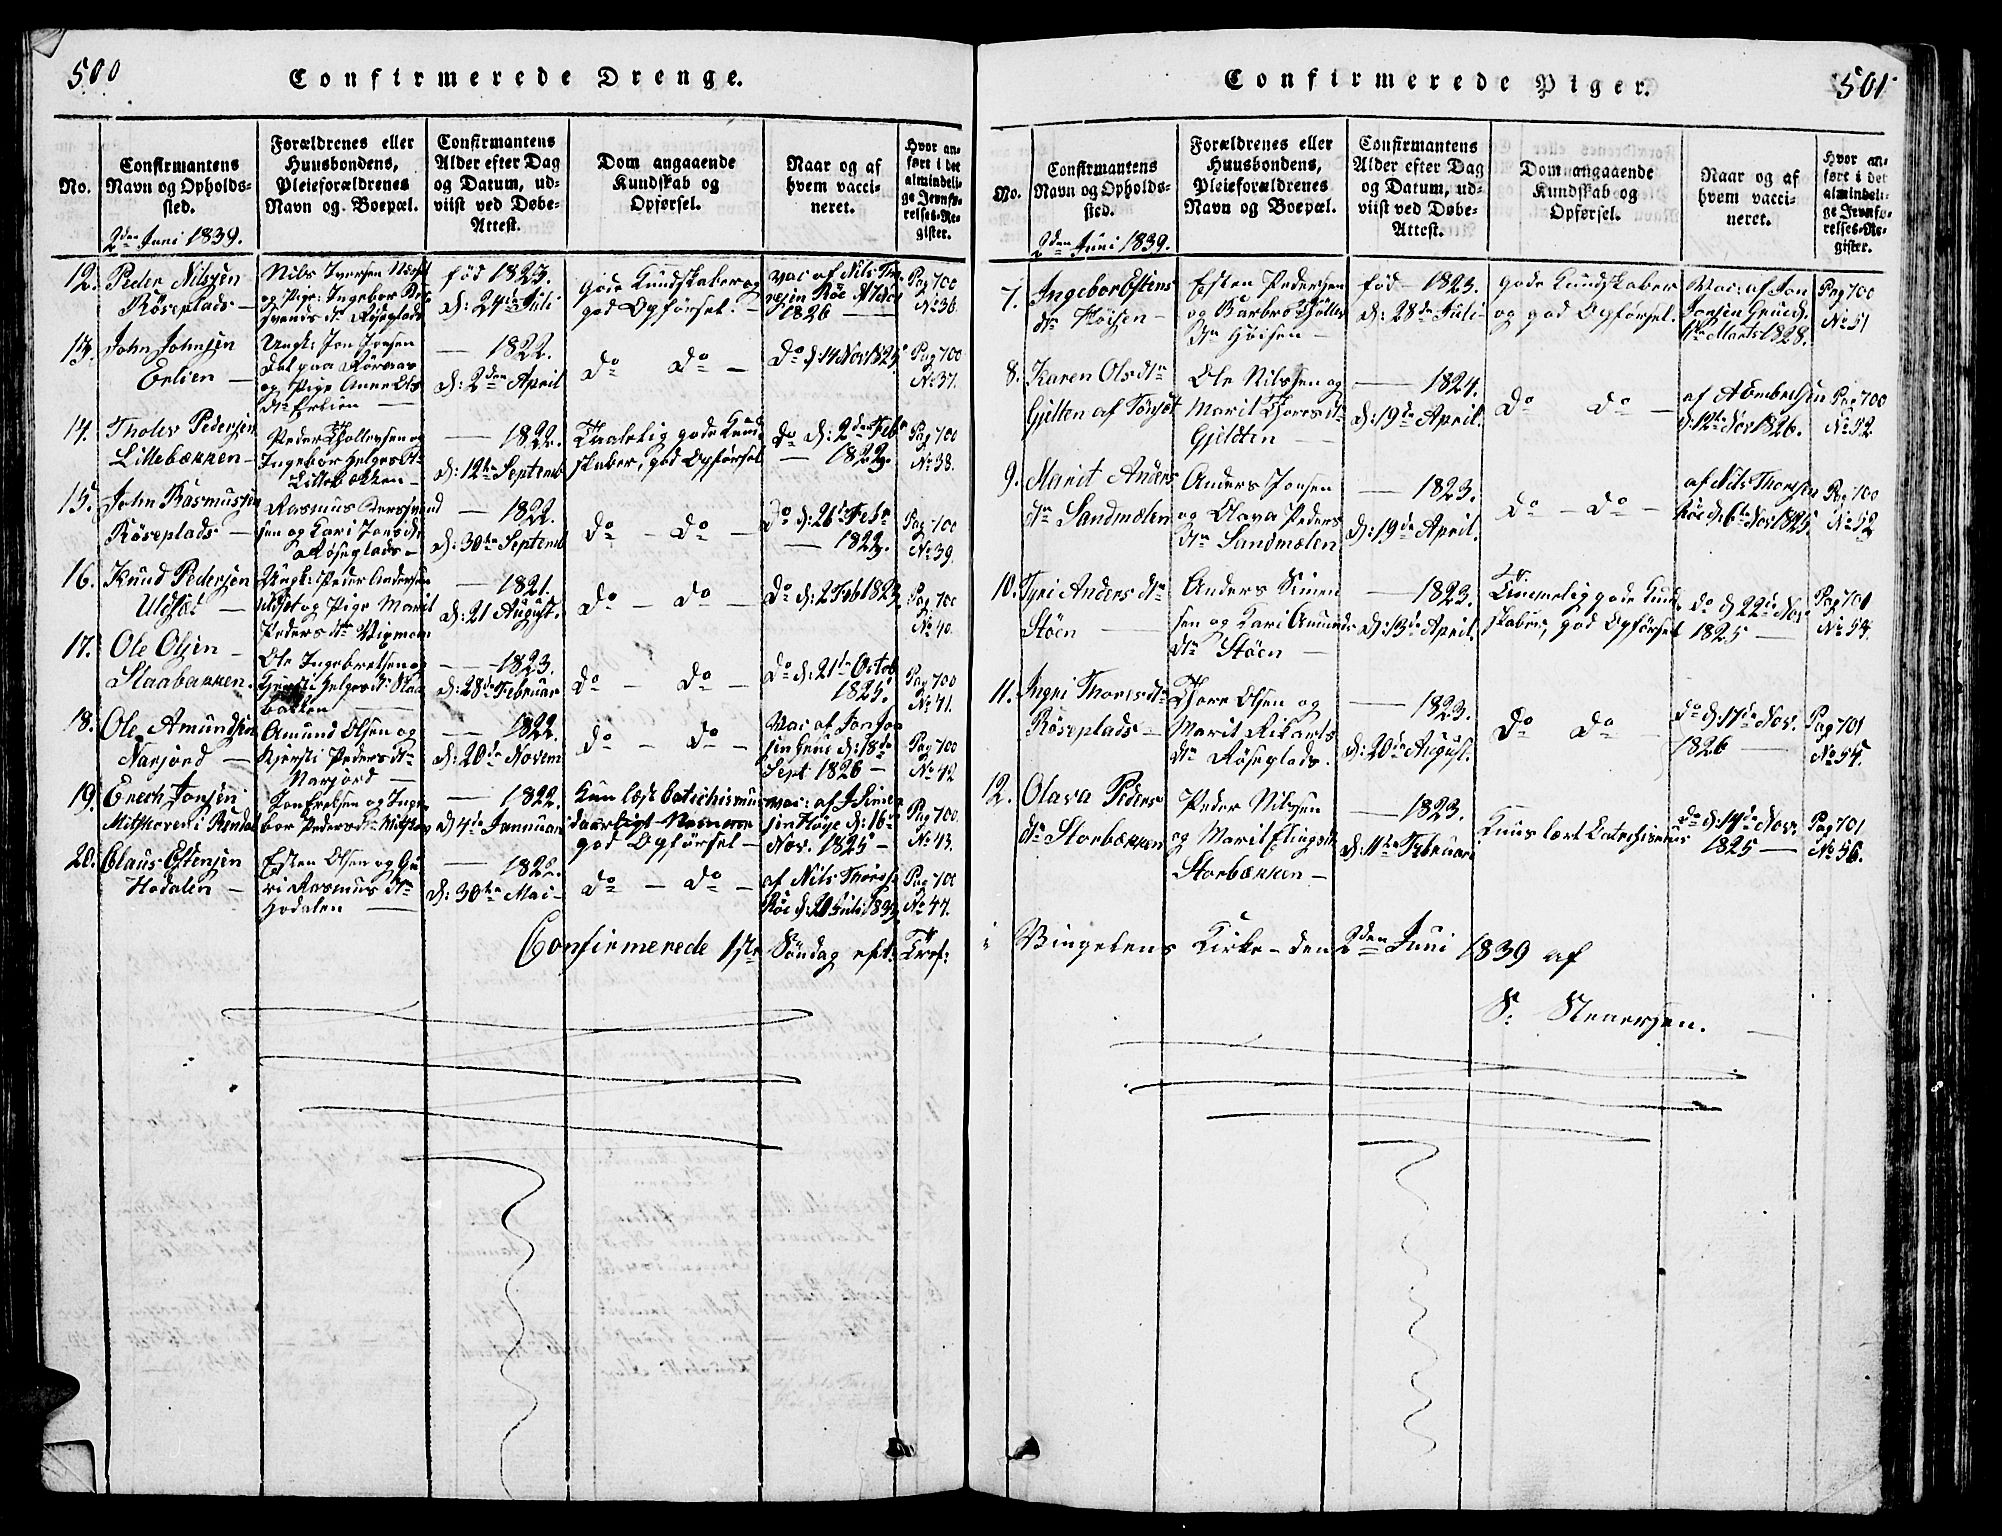 500
Confirmerede Drenge.
No.
Confirmantens
Navn og Opholds-
sted.
2den Juni 1839.
Forældrenes eller
Huusbondens,
Pleieforældrenes
Navn og Boepæl.
Confirmantens
Alder efter Dag
og Datum, ud-
viist ved Døbe-
Attest.
Dom angaaende
Kundskab og
Opførsel.
Naar og af
hvem vacci-
neret.
Hvor an-
ført i det
almindeli-
ge Jevnfø-
relses-Re-
gister.
12.
Peder Nilsen
Röseplads
Nils Iversen
og Pige: Ingebor
Röseplads
fød 1823.
d: 24de Juli
gode Kundskaber og
god Opførsel.
vac: af Nils
1826
Pag 700
No 36.
13.
John Johnsen
Erlien
Ungk: Jon Jonsen
paa Röraas
og Pige Anne Ols
dtr Erlien
1822.
d: 2den April
do do
do d: 14 Nov: 1825
Pag 700
No 37.
14.
Tholev Pedersen
Lillebækken
Peder Thollevsen og
Ingebor Helgesdtr
Lillebækken
1822.
d: 12te Septemb
Taalelig gode Kund-
skaber, god Opførsel
do d: 2den Feb
1823.
Pag 700
No 38.
15.
John Rasmussen
Röseplads
Rasmus
sen og Kari Jonsdtr
Röseplads
1822.
d: 30te Septemb
do do
do d: 26de Febr
1823.
Pag 700
No 39.
16.
Knud Pedersen
Udset
Ungk: Peder Andersen
og Pige Marit
Pedersdtr Vigmoen
1821.
d: 21 August.
do do
do d: 2 Feb 1823
Pag 700
No 40.
17.
Ole Olsen
Staabakken.
Ole Ingebretsen og
Helgesdtr Staa
bakken
1823.
d: 28de Februar
do do
do d: 21de Octob
1825.
Pag 700
No 41.
18.
Ole Amundsen
Narjord
Amund Olsen og
Kjersti Pedersdtr
Narjord
1822.
d: 20de Novem
do do
Vac: af Jon Jon
sen d: 18de
Sept: 1826
Pag 700
No 42
19.
Enech Jonsen
Mitskoven i Rendal
Jon Enelsen og Inge
bor Pedersdtr Mitskov
1822.
d 4de Januar
Kun læst Catechismus
god Opførsel
vac: af J. Simen
sen d: 16de
Nov: 1825
Pag 700.
No 43.
20.
Claus Estensen
Hodalen
Esten Olsen og Gu
ri Rasmusdtr
Hodalen
1822.
d: 30te Mai
do do
af Nils Thores
Röe d: 20 Juli
Pag 701
No 44.
Confirmerede 1ste Söndag eft: Tref:
501
Confirmerede Piger.
No.
Confirmantens
Navn og Opholds-
sted.
2den Juni 1839.
Forældrenes eller
Huusbondens,
Pleieforældrenes
Navn og Boepæl.
Confirmantens
Alder efter Dag
og Datum, ud-
viist ved Døbe-
Attest.
Dom angaaende
Kundskab og
Opførsel.
Naar og af
hvem vacci-
neret.
Hvor an-
ført i det
almindeli-
ge Jevnfø-
relses-Re-
gister.
7.
Ingebor Estens
dtr Höisen
Esten Pedersen
og Barbro Thollevs
dtr Höisen
fød 1823.
d: 28de Juli
gode Kundskaber
og god Opførsel.
Vac: af Jon
Jonsen
Marts 1828.
Pag 700
No 51
8.
Karen Olsdtr
Gjelten af Tönset
Ole Nilsen og
Marit Thoresdtr
Gjeldten
1824.
d: 19de April.
do do
af
d: 12te Nov 1826.
Pag 700
No 52
9.
Marit Anders
dtr Sandmælen
Anders Jonsen
og Olava Peders
dtr Sandmælen
1823.
d: 19de April.
do do
af Nils Thoresen
Röe d: 6te Nov 1825.
Pag 700
No 52
10.
Tyri Andersdtr
Stöen
Anders Simen
sen og Kari Amunds
dtr Stöen
1823.
d: 13de April.
Timmelig gode Kund
skaber, god Opførsel
do d 22de Nov
1825
Pag 701
No 54.
11.
Ingri Thoresdtr
Röseplads
Thore Olsen og
Marit Rikarts
dtr Röseplads.
1823.
d: 20de August.
do do
do d: 17de Nov.
1826
Pag 701
No 54.
12.
Olava Peders
dtr Storbækken
Peder Nilsen
og Marit Elingsdtr
Storbækken
1823.
d: 11te Februari
Kuns lært Catechismus
do d: 14de Nov:
1825
Pag 701
No 56.
i Vingelens Kirke den 2den Juni 1839 af
S: Stenersen.